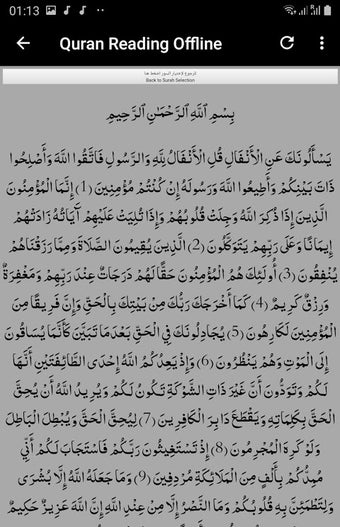 01:13
Quran Reading Offline
للرجوع لاختيار السور اضغط هنا
Back to Surah Selection
بِسْمِ ٱللَّهِ ٱلرَّحْمَـٰنِ ٱلرَّحِيمِ
يَسْأَلُونَكَ عَنِ الْأَنْفَالِ قُلِ الْأَنْفَالُ لِلَّهِ وَالرَّسُولِ فَاتَّقُوا اللَّهَ وَأَصْلِحُوا
ذَاتَ بَيْنِكُمْ وَأَطِيعُوا اللَّهَ وَرَسُولَهُ إِنْ كُنْتُمْ مُؤْمِنِينَ (1) إِنَّمَا الْمُؤْمِنُونَ
الَّذِينَ إِذَا ذُكِرَ اللَّهُ وَجِلَتْ قُلُوبُهُمْ وَإِذَا تُلِيَتْ عَلَيْهِمْ آيَاتُهُ زَادَتْهُمْ
إِيمَانًا وَعَلَى رَبِّهِمْ يَتَوَكَّلُونَ (2) الَّذِينَ يُقِيمُونَ الصَّلَاةَ وَمِمَّا رَزَقْنَاهُمْ
يُنْفِقُونَ (3) أُولَئِكَ هُمُ الْمُؤْمِنُونَ حَقًّا لَهُمْ دَرَجَاتٌ عِنْدَ رَبِّهِمْ وَمَغْفِرَةٌ
وَرِزْقٌ كَرِيمٌ (4) كَمَا أَخْرَجَكَ رَبُّكَ مِنْ بَيْتِكَ بِالْحَقِّ وَإِنَّ فَرِيقًا مِنَ
الْمُؤْمِنِينَ لَكَارِهُونَ (5) يُجَادِلُونَكَ فِي الْحَقِّ بَعْدَمَا تَبَيَّنَ كَأَنَّمَا يُسَاقُونَ
إِلَى الْمَوْتِ وَهُمْ يَنْظُرُونَ (6) وَإِذْ يَعِدُكُمُ اللَّهُ إِحْدَى الطَّائِفَتَيْنِ أَنَّهَا
لَكُمْ وَتَوَدُّونَ أَنَّ غَيْرَ ذَاتِ الشَّوْكَةِ تَكُونُ لَكُمْ وَيُرِيدُ اللَّهُ أَنْ يُحِقَّ
الْحَقَّ بِكَلِمَاتِهِ وَيَقْطَعَ دَابِرَ الْكَافِرِينَ (7) لِيُحِقَّ الْحَقَّ وَيُبْطِلَ الْبَاطِلَ
وَلَوْ كَرِهَ الْمُجْرِمُونَ (8) إِذْ تَسْتَغِيثُونَ رَبَّكُمْ فَاسْتَجَابَ لَكُمْ أَنِّي
مُمِدُّكُمْ بِأَلْفٍ مِنَ الْمَلَائِكَةِ مُرْدِفِينَ (9) وَمَا جَعَلَهُ اللَّهُ إِلَّا بُشْرَى
وَلِتَطْمَئِنَّ بِهِ قُلُوبُكُمْ وَمَا النَّصْرُ إِلَّا مِنْ عِنْدِ اللَّهِ إِنَّ اللَّهَ عَزِيزٌ حَكِيمٌ